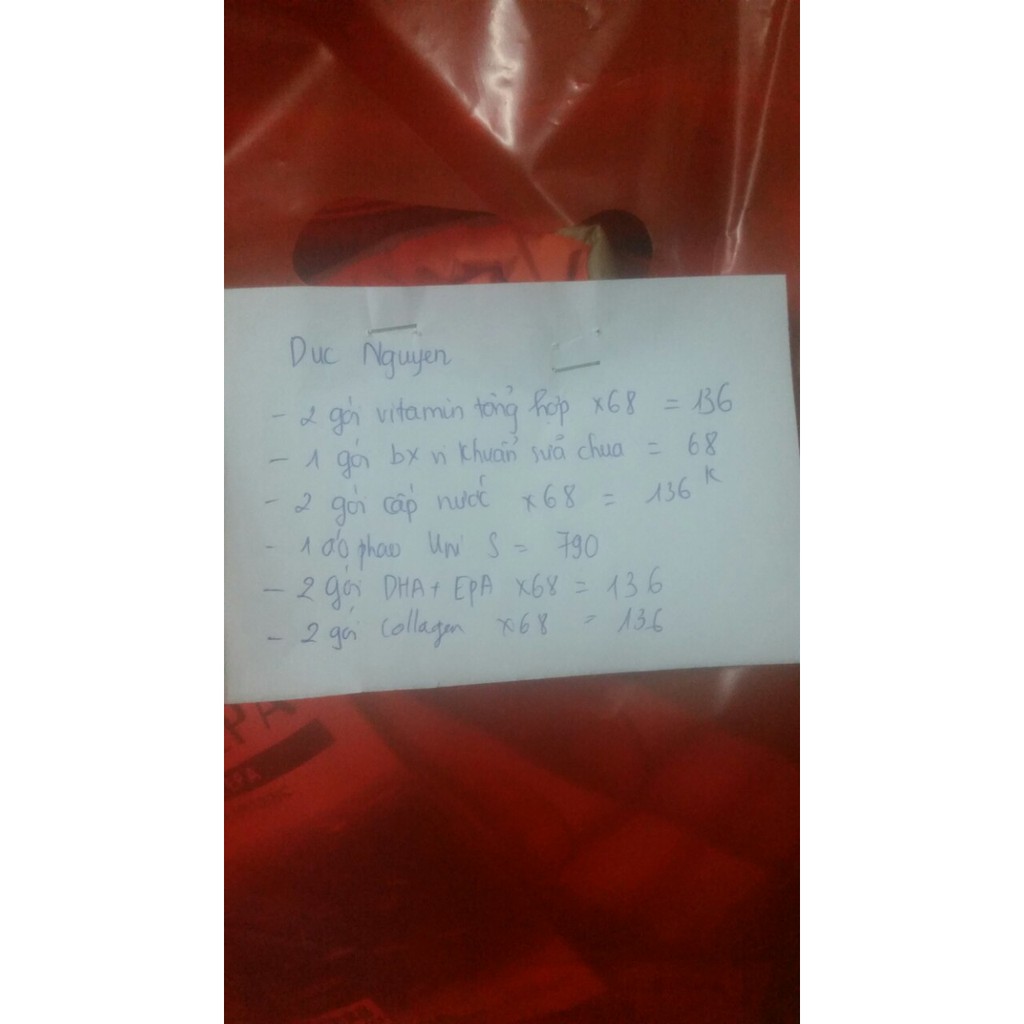 Duc Nguyen
- 2 gói vitamin tổng hợp x68 = 136
- 1 gói bx vi khuẩn sữa chua = 68
- 2 gói cấp nước x68 = 136K
- 1 áo phao Uni S = 790
- 2 gói DHA + EPA x68 = 136
- 2 gói Collagen x68 = 136
PA